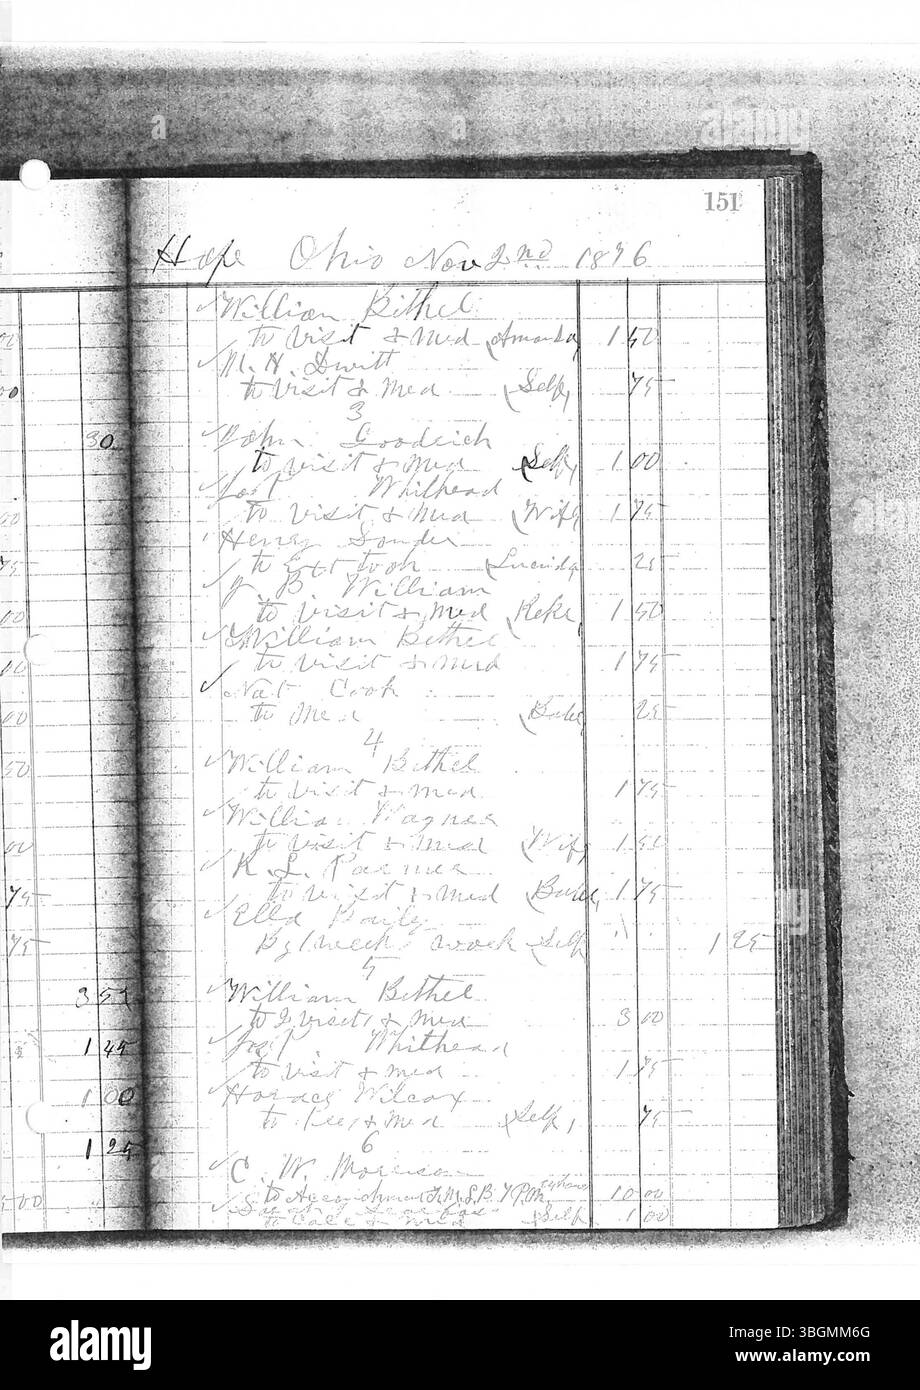 151
Hope Ohio Nov 2nd 1896
William Bethel
to visit & Med (Amanda, 1 50
M. H. Swift
to visit & Med (Self, 75
3
30
John Goodrich
to visit & Med (Self, 1 00
Whithead
to visit & Med (Wife 1 75
Henry Souder
to Ext tooth (Lucinda 25
B. William
to visit & Med 1 50
William Bethel
to visit & Med 1 75
Nat Cook
to Med (Babe, 25
4
William Bethel
to visit & Med 1 75
William Wagner
to visit & Med (Wife, 1 50
to visit & Med (Babe, 1 75
Ella Baily
By 1 week work Self 1 25
5
William Bethel
to 2 visits & Med 3 00
Whithead
1 45
to visit & Med 1 75
Horace Wilcox
1 00
& Med (Self, 75
6
1 25
C. W. Morrison
10 00
& Med (Self 1 00
a
alamy
alamy
Image ID: 3BGMM6G
www.alamy.com